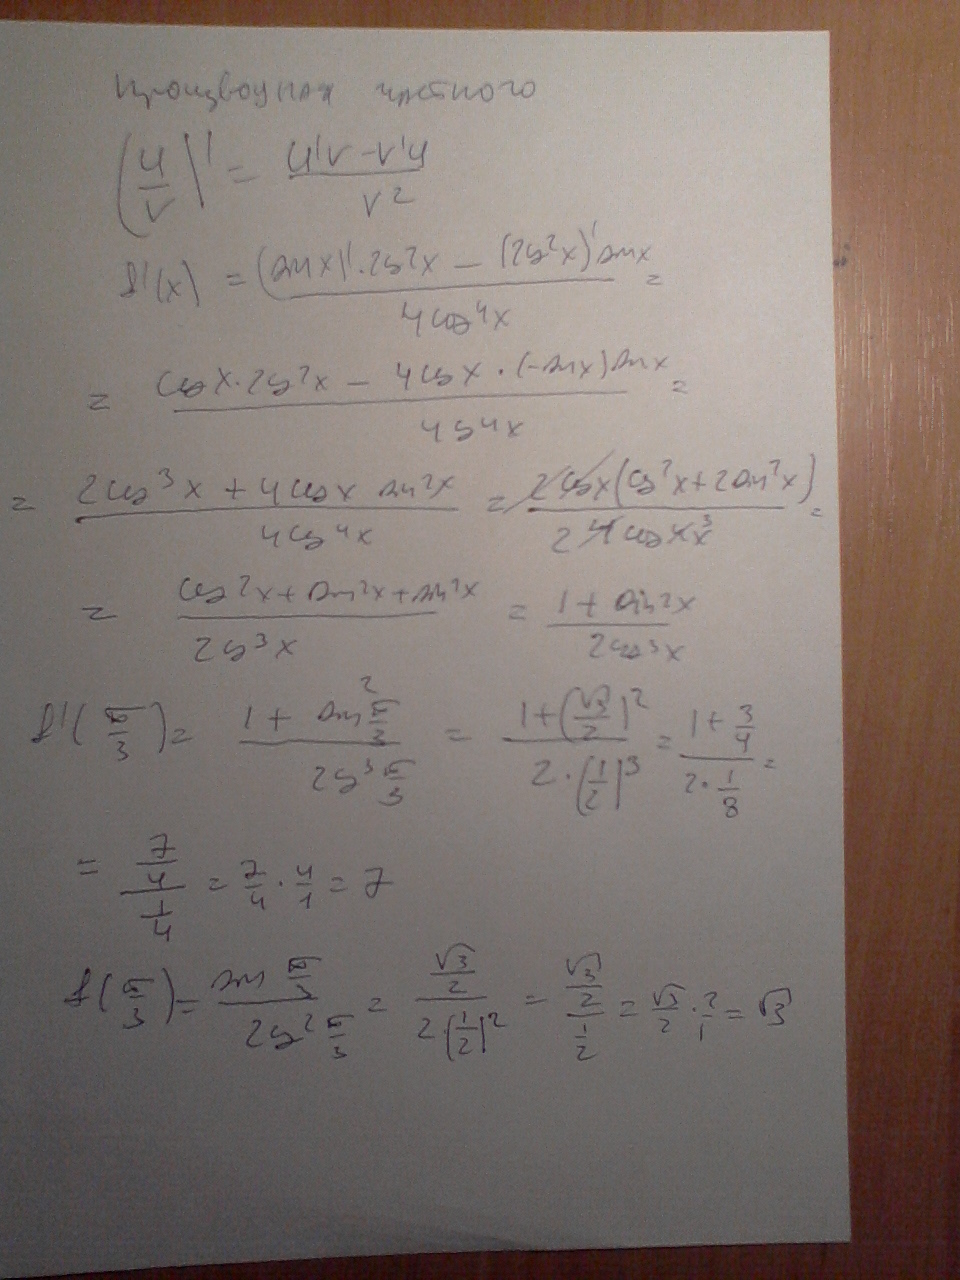 производная частного
(u/v)' = (u'v - v'u)/v²
f'(x) = ((sin x)' · 2cos²x - (2cos²x)' sin x)/(4cos⁴x) =
= (cos x · 2cos²x - 4cos x · (-sin x) sin x)/(4cos⁴x) =
= (2cos³x + 4cos x sin²x)/(4cos⁴x) = 2cos x(cos²x + 2sin²x)/(2 4cos⁴x ³x) =
= (cos²x + sin²x + sin²x)/(2cos³x) = (1 + sin²x)/(2cos³x)
f'(π/3) = (1 + sin² π/3)/(2cos³ π/3) = (1 + (√3/2)²)/(2 · (1/2)³) = (1 + 3/4)/(2 · 1/8) =
= (7/4)/(1/4) = 7/4 · 4/1 = 7
f(π/3) = (sin π/3)/(2cos² π/3) = (√3/2)/(2(1/2)²) = (√3/2)/(1/2) = √3/2 · 2/1 = √3